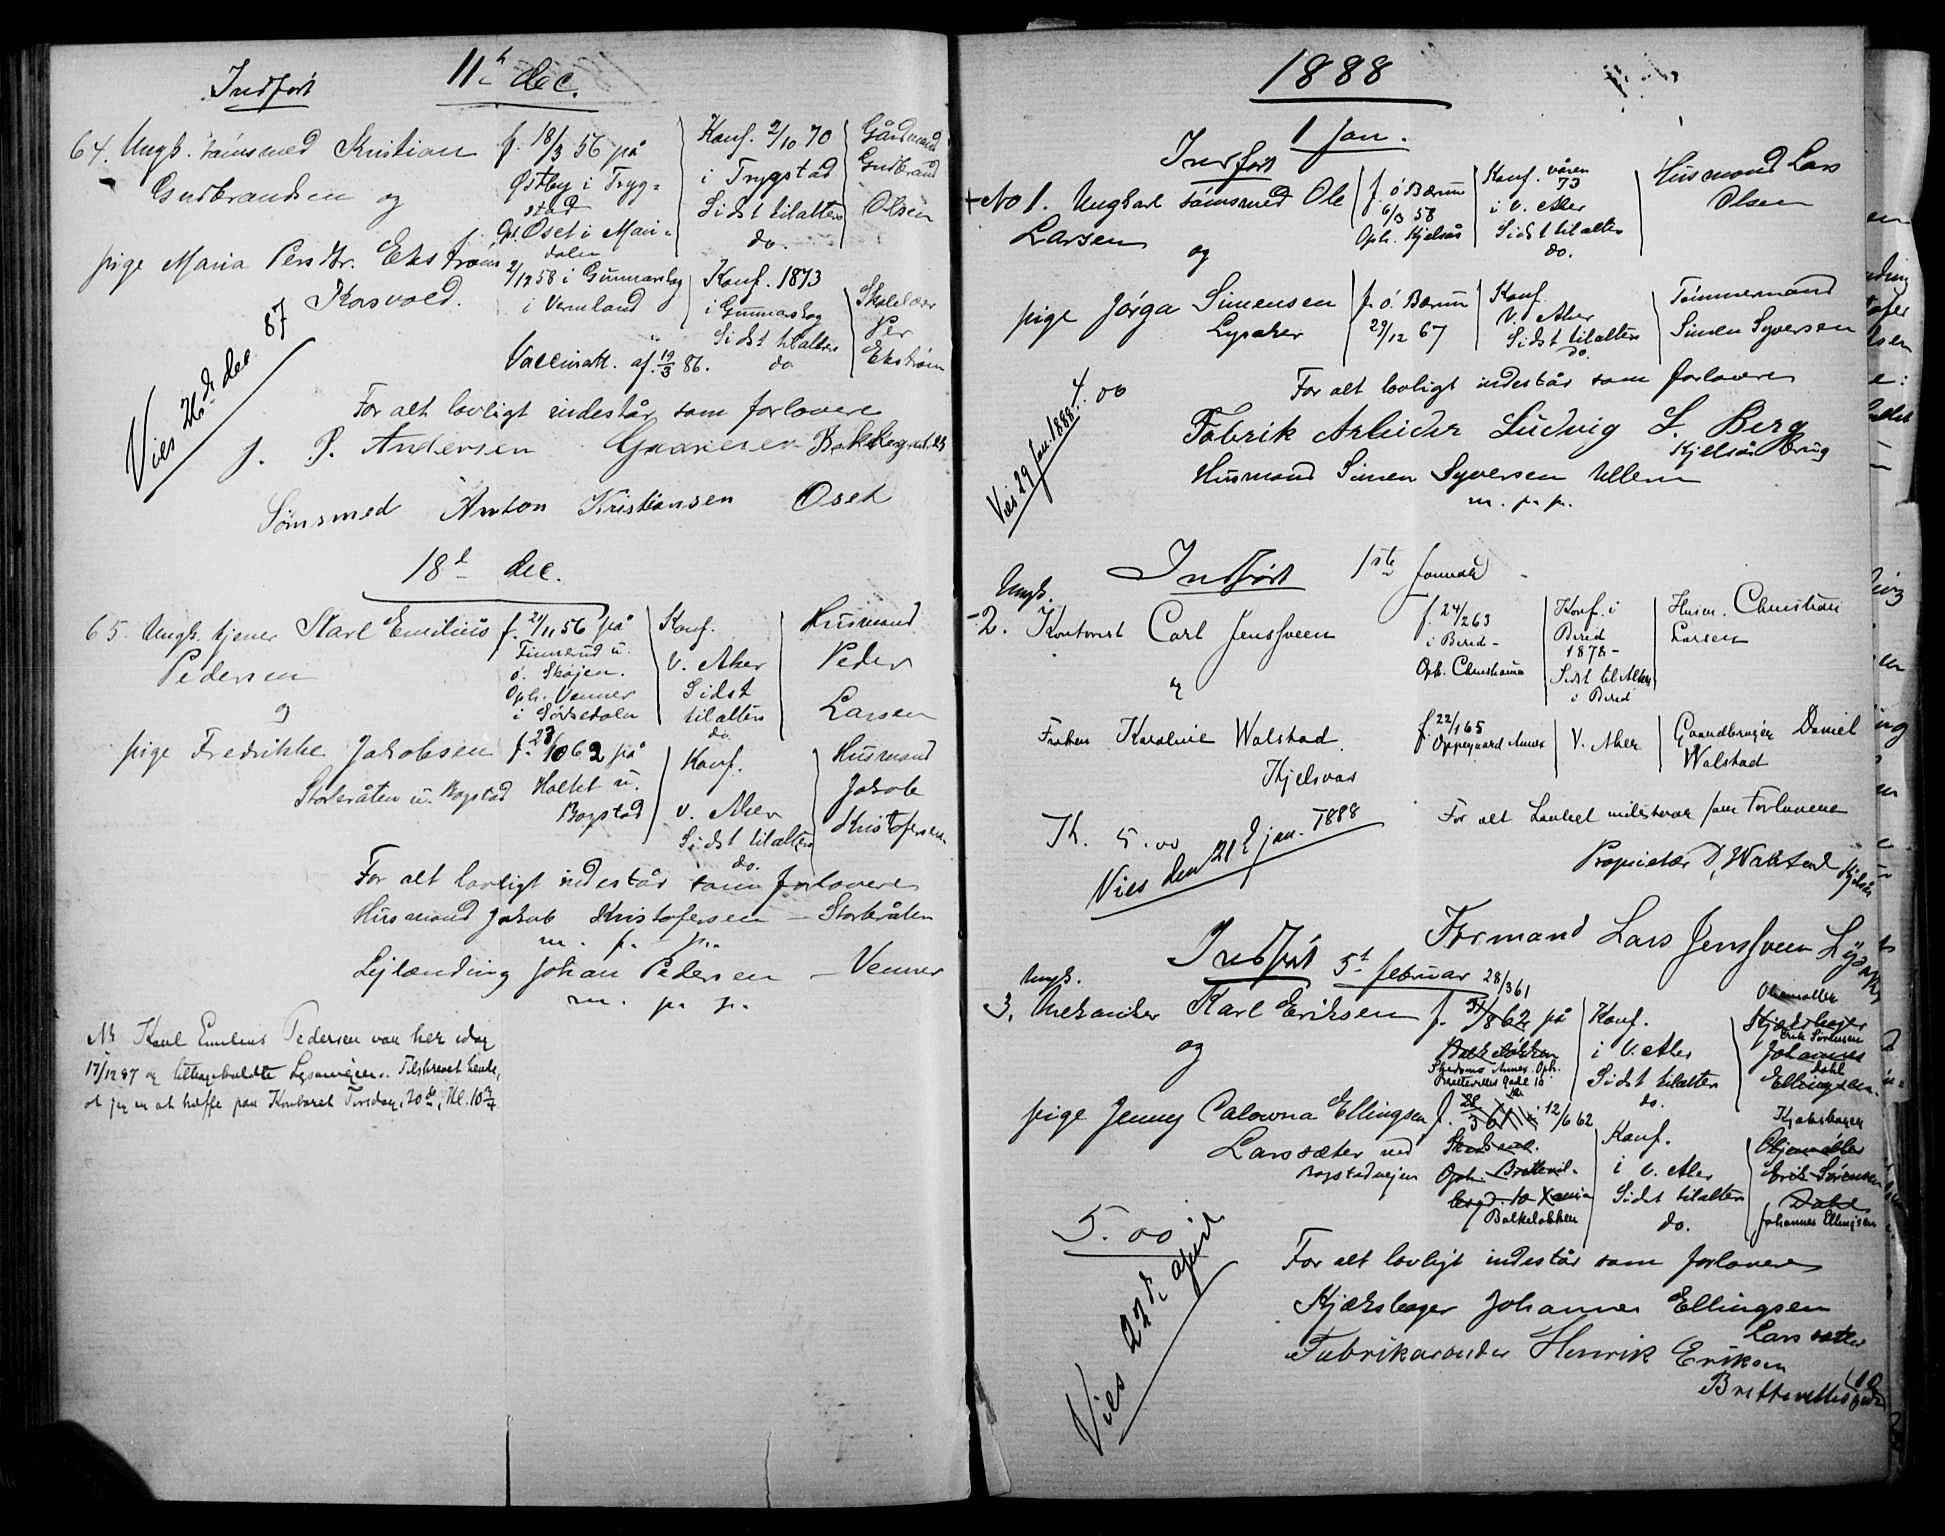 Indført 11t dec.
64. Ungk. sømsmed Kristian Gudbrandsen og
f. 18/3 56 på Østby i Trygstad
Oph. Oset i Maridalen
Konf. 2/10 70 i Trygstad
Sidst tilalters do.
Gårdmand Gudbrand Olsen
pige Maria Persdtr. Ekstrøm
Korsvold.
2/12 58 i Gunnarskog i Vermland
Konf. 1873 i Gunnarskog
Sidst tilalters do
Skolelærer Per Ekstrøm
Vaccinatt. af. 19/3 86.
Vies 26de dec. 87
For alt lovligt indestår som forlovere
J. P. Andersen
Sømsmed Anton Kristiansen Oset
18d dec.
65. Ungk. tjener Karl Emilius Pedersen
og
f. 21/11 56 på Finnerud u. ö. Skøjen.
Oph. Venner i Sørkedalen
Konf. V. Aker
Sidst tilalters do
Husmand Peder Larsen
pige Fredrikke Jakobsen
Storbråten u. Bogstad
f. 23/10 62 på Holtet u. Bogstad
Konf. V. Aker
Sidst tilalters do.
Husmand Jakob Kristofersen
For alt lovligt indestår som forlovere
Husmand Jakob Kristofersen – Storbråten
m. p. p.
Lejlænding Johan Pedersen – Venner
m. p. p.
NB Karl Emilius Pedersen var her idag
17/12 87 og tilbagekaldte Lysningen. Tilskrevet hende,
at jeg er at træffe paa Kontoret Tirsdag, 20de, Kl. 10
1888
1 Jan.
Indført
No 1. Ungkarl sømsmed Ole Larsen
og
f. ö. Bærum 6/3 58
Oph. Kjelsås
Konf. våren 73 i V. Aker
Sidst tilalters do.
Husmand Lars Olsen
pige Jørga Simensen
Lysaker
f. ö. Bærum 29/12 67
Konf. V. Aker
Sidst tilalters do.
Tømmermand Simen Syversen
4.00
Vies 29 Jan. 1888.
For alt lovligt indestår som forlovere
Fabrik Arbeider Ludvig L. Berg
Kjelsås Brug
Husmand Simen Syversen Ullern
m. p. p.
Indført 1ste januar
Ungk.
2. Kontorist Carl Jenssveen
og
f. 24/2 63 i Bired –
Oph. Christiania
Konf. i Bired 1878 –
Sidst til Alters i Bired
Husm. Christian Larsen
Frøken Karoline Walstad.
Kjelsaas
f. 22/1 65 Oppegaard Annex
V. Aker
Gaardbruger Daniel Walstad
5.00
Vies den 21d jan. 1888
For alt Lovligt indestaar som Forlovere
Proprietær D. Walstad Kjelsås
Formand Lars Jenssveen
Indført 5t februar
Ungk.
3. Mekaniker Karl Eriksen
og
28/3 61
f. 31/8 62 på
Balkeløkken
Skedsmo Annex. Oph.
Brettevilles Gade 10
Konf. i V. Aker
Sidst tilalters do.
Oliemøller
Kjæksbager
Erik Sørensen
Johannes
Dahl
Ellingsen.
pige Jenny Calowna Ellingsen
Larssæter ved Bogstadvejen
f. 28/3 61 12/6 62
Skedsmo.
Oph. Brettevil-
lesgd. 10 Xania
Balkeløkken
Konf. i V. Aker
Sidst tilalters do.
Kjæksbager
Oljemøller
Erik Sørensen
Dahl
Johannes Ellingsen
5.00
Vies 22d april
For alt lovligt indestår som forlovere
Kjæksbager Johannes Ellingsen
Larssæter
Fabrikarbeider Henrik Eriksen
Brettevillesgade 10